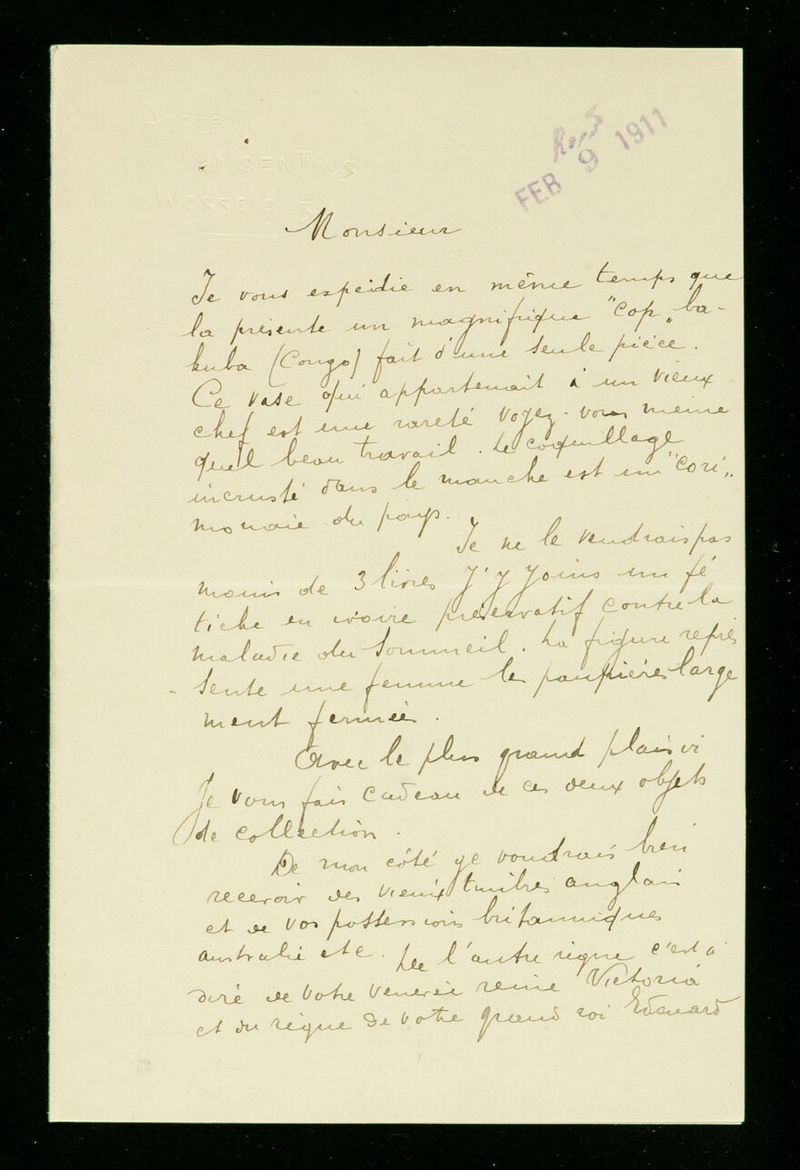 Docteur
VANGENTIUS
Rec'd
FEB 9 1911
Monsieur
Je vous expédie en même temps que
la présente un magnifique "cop„ ba-
kuba (Congo) fait d'une seule pièce.
Ce vase qui appartenait à un vieux
chef est une rareté voyez-vous meme
quel beau travail. Le coquillage
incrusté dans le manche est un "cori„
monaie du pays.
Je ne le vendrais pas
moins de 3 livres J'y joins un fé
tiche en ivoire préservatif contre la
maladie du sommeil. La figure repré
- sente une femme les paupières large
ment fermées.
Avec le plus grand plaisi
Je vous fais cadeau de ces deux objets
de collection.
De mon côté je voudrais bien
recevoir des vieux timbres anglais
et de vos possessions britanniques
australie etc. De l'autre règne c'est à
dire de votre vénérée reine Victoria
et du règne de votre grand roi Edouard